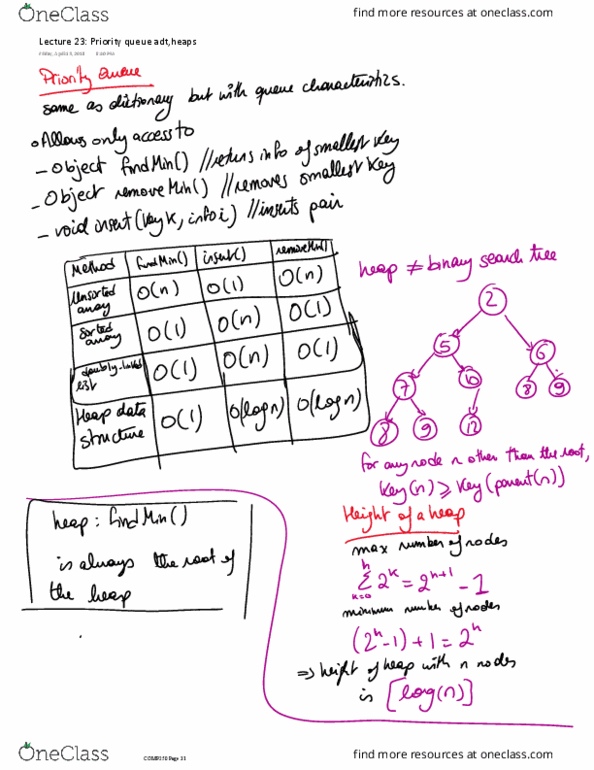 OneClass
find more resources at oneclass.com
Lecture 23: Priority queue adt,heaps
Priority Queue
same as dictionary but with queue characteristics.
Allows only access to
- Object findMin() //returns info of smallest key
- Object removeMin() //removes smallest key
- void insert(key k, info i) //inserts pair
Method findMin() insert() removeMin()
Unsorted array O(n) O(1) O(n)
Sorted array O(1) O(n) O(1)
doubly-linked list O(1) O(n) O(1)
Heap data structure O(1) O(log n) O(log n)
heap ≠ binary search tree
2
5 6
7 10 8 9
8 9 12
for any node n other than the root,
Key(n) ≥ Key(parent(n))
heap: findMin()
is always the root of
the heap
Height of a heap
max number of nodes
h
Σ 2^k = 2^(h+1) - 1
k=0
minimum number of nodes
(2^h - 1) + 1 = 2^h
⇒ height of heap with n nodes
is [log(n)]
OneClass
find more resources at oneclass.com